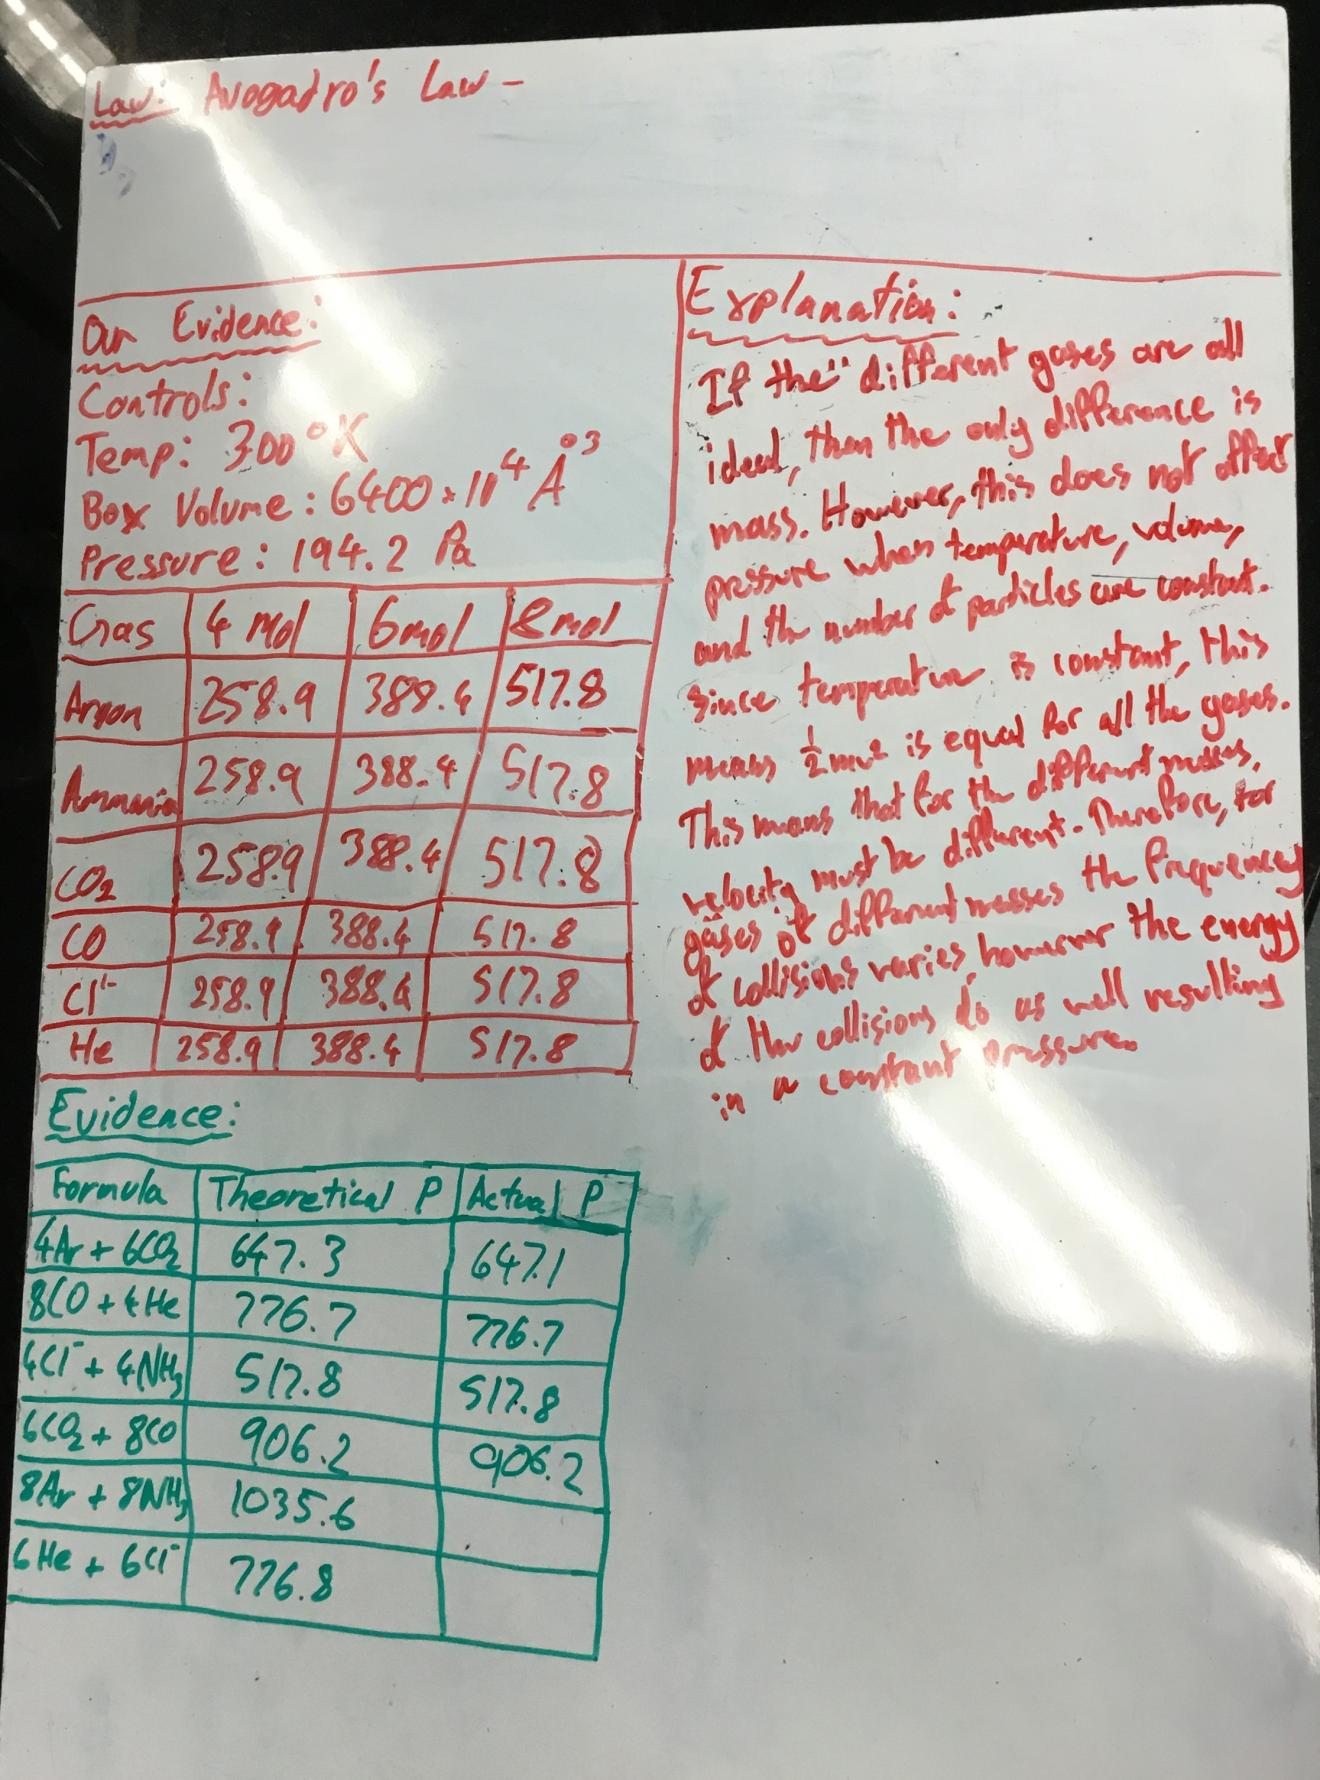 Law: Avogadro's Law -
Our Evidence:
Controls:
Temp: 300°K
Box Volume: 6400 × 10⁴ Å³
Pressure: 194.2 Pa
Gas 4 mol 6mol 8mol
Argon 258.9 388.4 517.8
Ammonia 258.9 388.4 517.8
CO₂ 258.9 388.4 517.8
CO 258.9 388.4 517.8
Cl⁻ 258.9 388.4 517.8
He 258.9 388.4 517.8
Evidence:
Formula Theoretical P Actual P
4Ar + 6CO₂ 647.3 647.1
8CO + 4He 776.7 776.7
4Cl⁻ + 4NH₃ 517.8 517.8
6CO₂ + 8CO 906.2 906.2
8Ar + 8NH₃ 1035.6
6He + 6Cl⁻ 776.8
Explanation:
If the" different gases are all
ideal, then the only difference is
mass. However, this does not affect
pressure when temperature, volume,
and the number of particles are constant.
Since temperature is constant, this
means ½mv² is equal for all the gases.
This means that for the different masses,
velocity must be different. Therefore, for
gases of different masses the frequency
of collisions varies, however the energy
of the collisions do as well resulting
in a constant pressure.